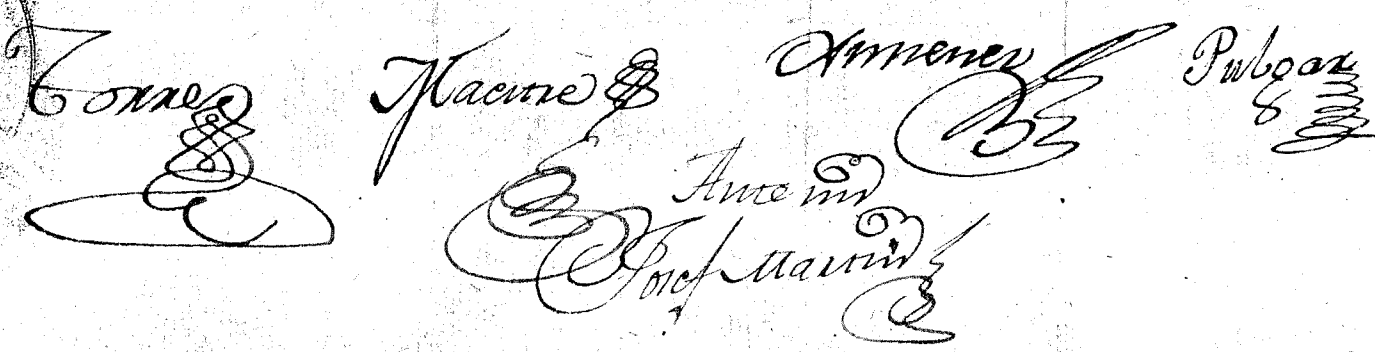 Torres Maestre Ximenez Pulgar
Ante mi
Josef Martin